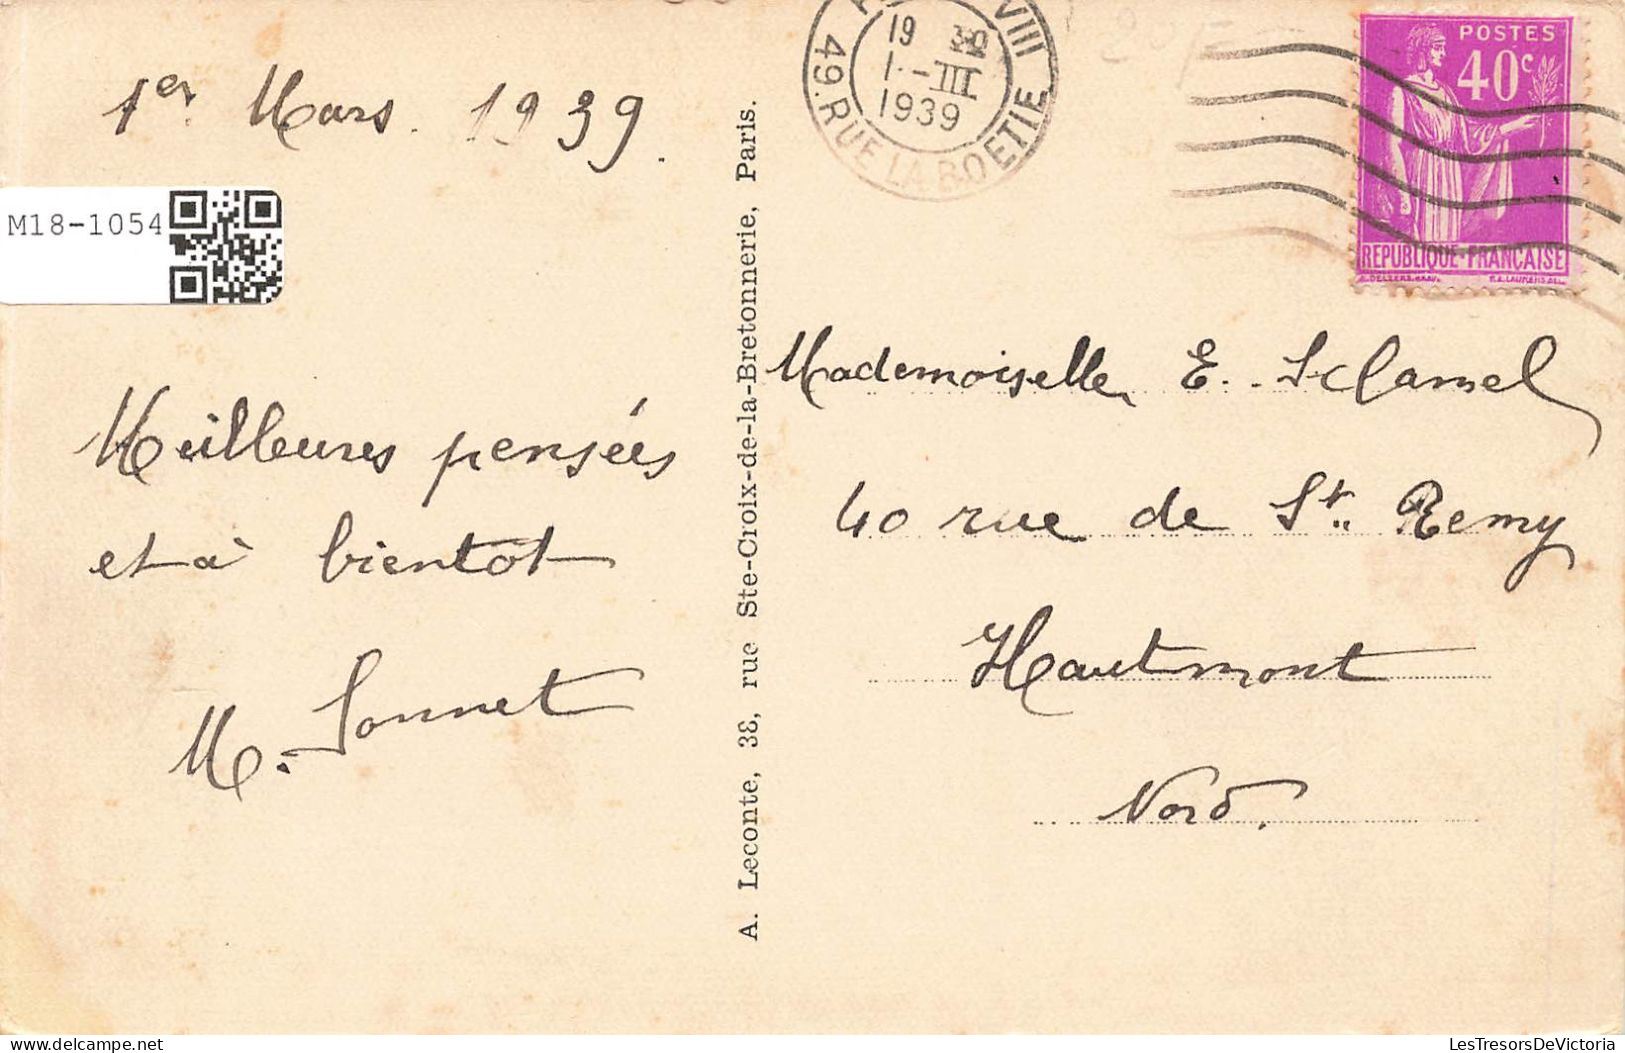 1er Mars 1939.
M18-1054
Meilleures pensées
et à bientôt
M. Sonnet
A. Leconte, 38, rue Ste-Croix-de-la-Bretonnerie, Paris.
VIII
19
1 -III
1939
49. RUE LA BOETIE
POSTES
40c
REPUBLIQUE-FRANÇAISE
Mademoiselle E. Sclamel
40 rue de St. Remy
Hautmont
Nord.
LesTresorsDeVictoria